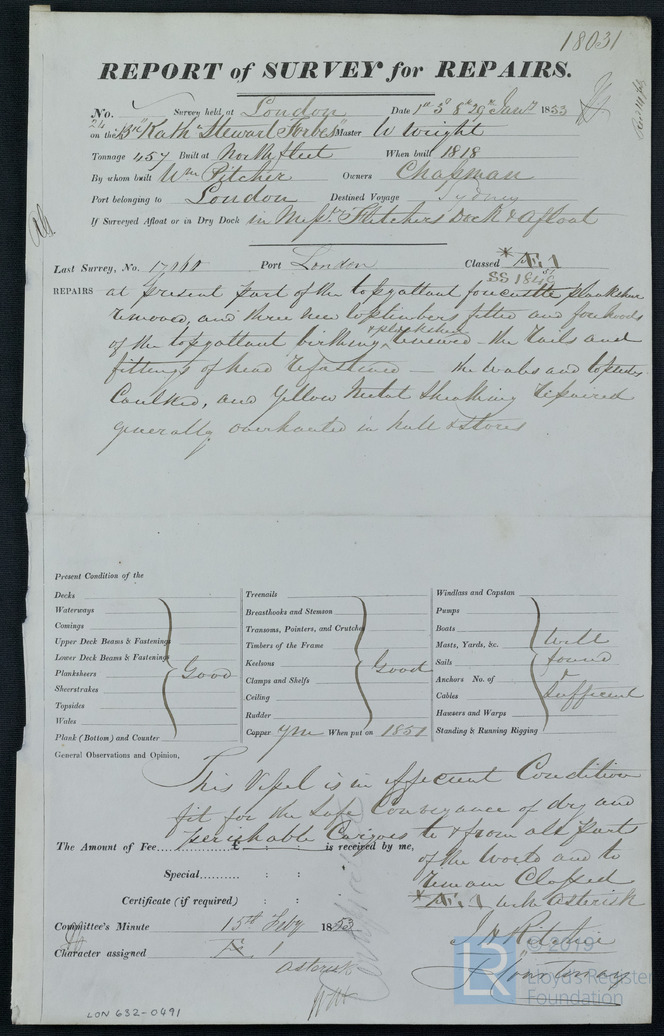 18031
REPORT of SURVEY for REPAIRS.
No. Survey held at London Date 1st 5th 8th 29th Jany 1853
24 on the Bn "Kath. Stewart Forbes" Master W Wright
Tonnage 457 Built at Northfleet When built 1818
By whom built Wm Pitcher Owners Chapman
Port belonging to London Destined Voyage Sydney
If Surveyed Afloat or in Dry Dock in Messrs Fletchers Dock & Afloat
Last Survey, No. Port London Classed * Æ 1
SS 1849
REPAIRS at present part of the topgallant forecastle planksheer
removed, and three new toptimbers fitted and forehoods
of the topgallant birthing & planksheer renewed – the rails and
fittings of head refastened – the Wales and topsides
Caulked, and Yellow Metal Sheathing repaired
generally overhauled in hull & stores
Present Condition of the
Decks
Waterways
Comings
Upper Deck Beams & Fastenings
Lower Deck Beams & Fastenings
Planksheers Good
Sheerstrakes
Topsides
Wales
Plank (Bottom) and Counter
Treenails
Breasthooks and Stemson
Transoms, Pointers, and Crutches
Timbers of the Frame
Keelsons Good
Clamps and Shelfs
Ceiling
Rudder
Copper YM When put on 1851
Windlass and Capstan
Pumps
Boats
Masts, Yards, &c. Well
Sails found
Anchors No. of &
Cables Sufficient
Hawsers and Warps
Standing & Running Rigging
General Observations and Opinion,
This Vessel is in efficient Condition
fit for the Safe Conveyance of dry and
perishable Cargoes to & from all parts
of the World and to
remain Classed
* Æ 1 with asterisk
The Amount of Fee £ : : is received by me,
Special : :
Certificate (if required) : :
Committee's Minute 15th Feby 1853
Character assigned Æ 1
asterisk
J H Ritchie
J Courtenay
© 2019
LR
Lloyd's Register
Foundation
LON 632-0491